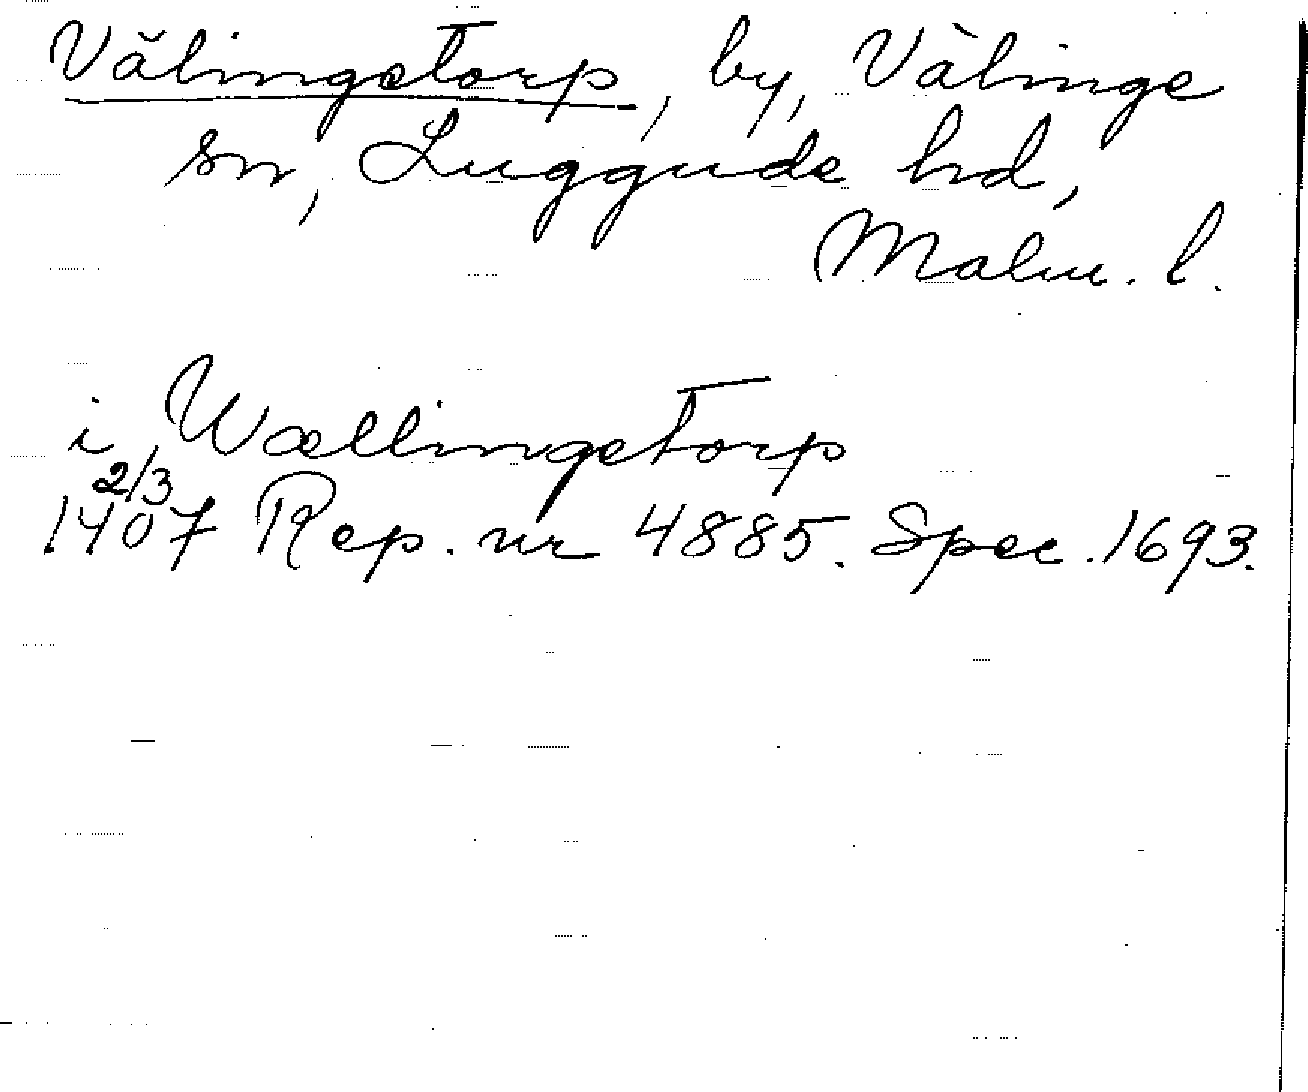 Välingetorp, by, Välinge
sn, Luggude hd,
Malm. l.
i Wællingetorp
2/3
1407 Rep. nr 4885. Spec. 1693.